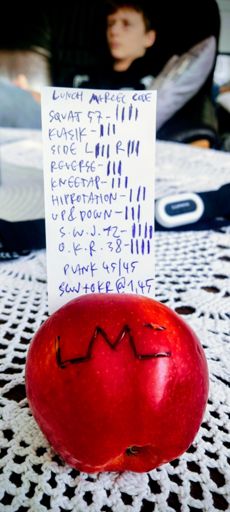 LUNCH MERCEC CORE
SQUAT 57 - ||||
KLASIK - |||
SIDE L ||| R |||
REVERSE - |||
KNEETAP - |||
HIPROTATION - |||
UP&DOWN - |||
S.W.J. 12 - ||||
O.K.R. 38 - ||||
PLANK 45/45
SWJ + OKR @ 1,45
LMC
GARMIN